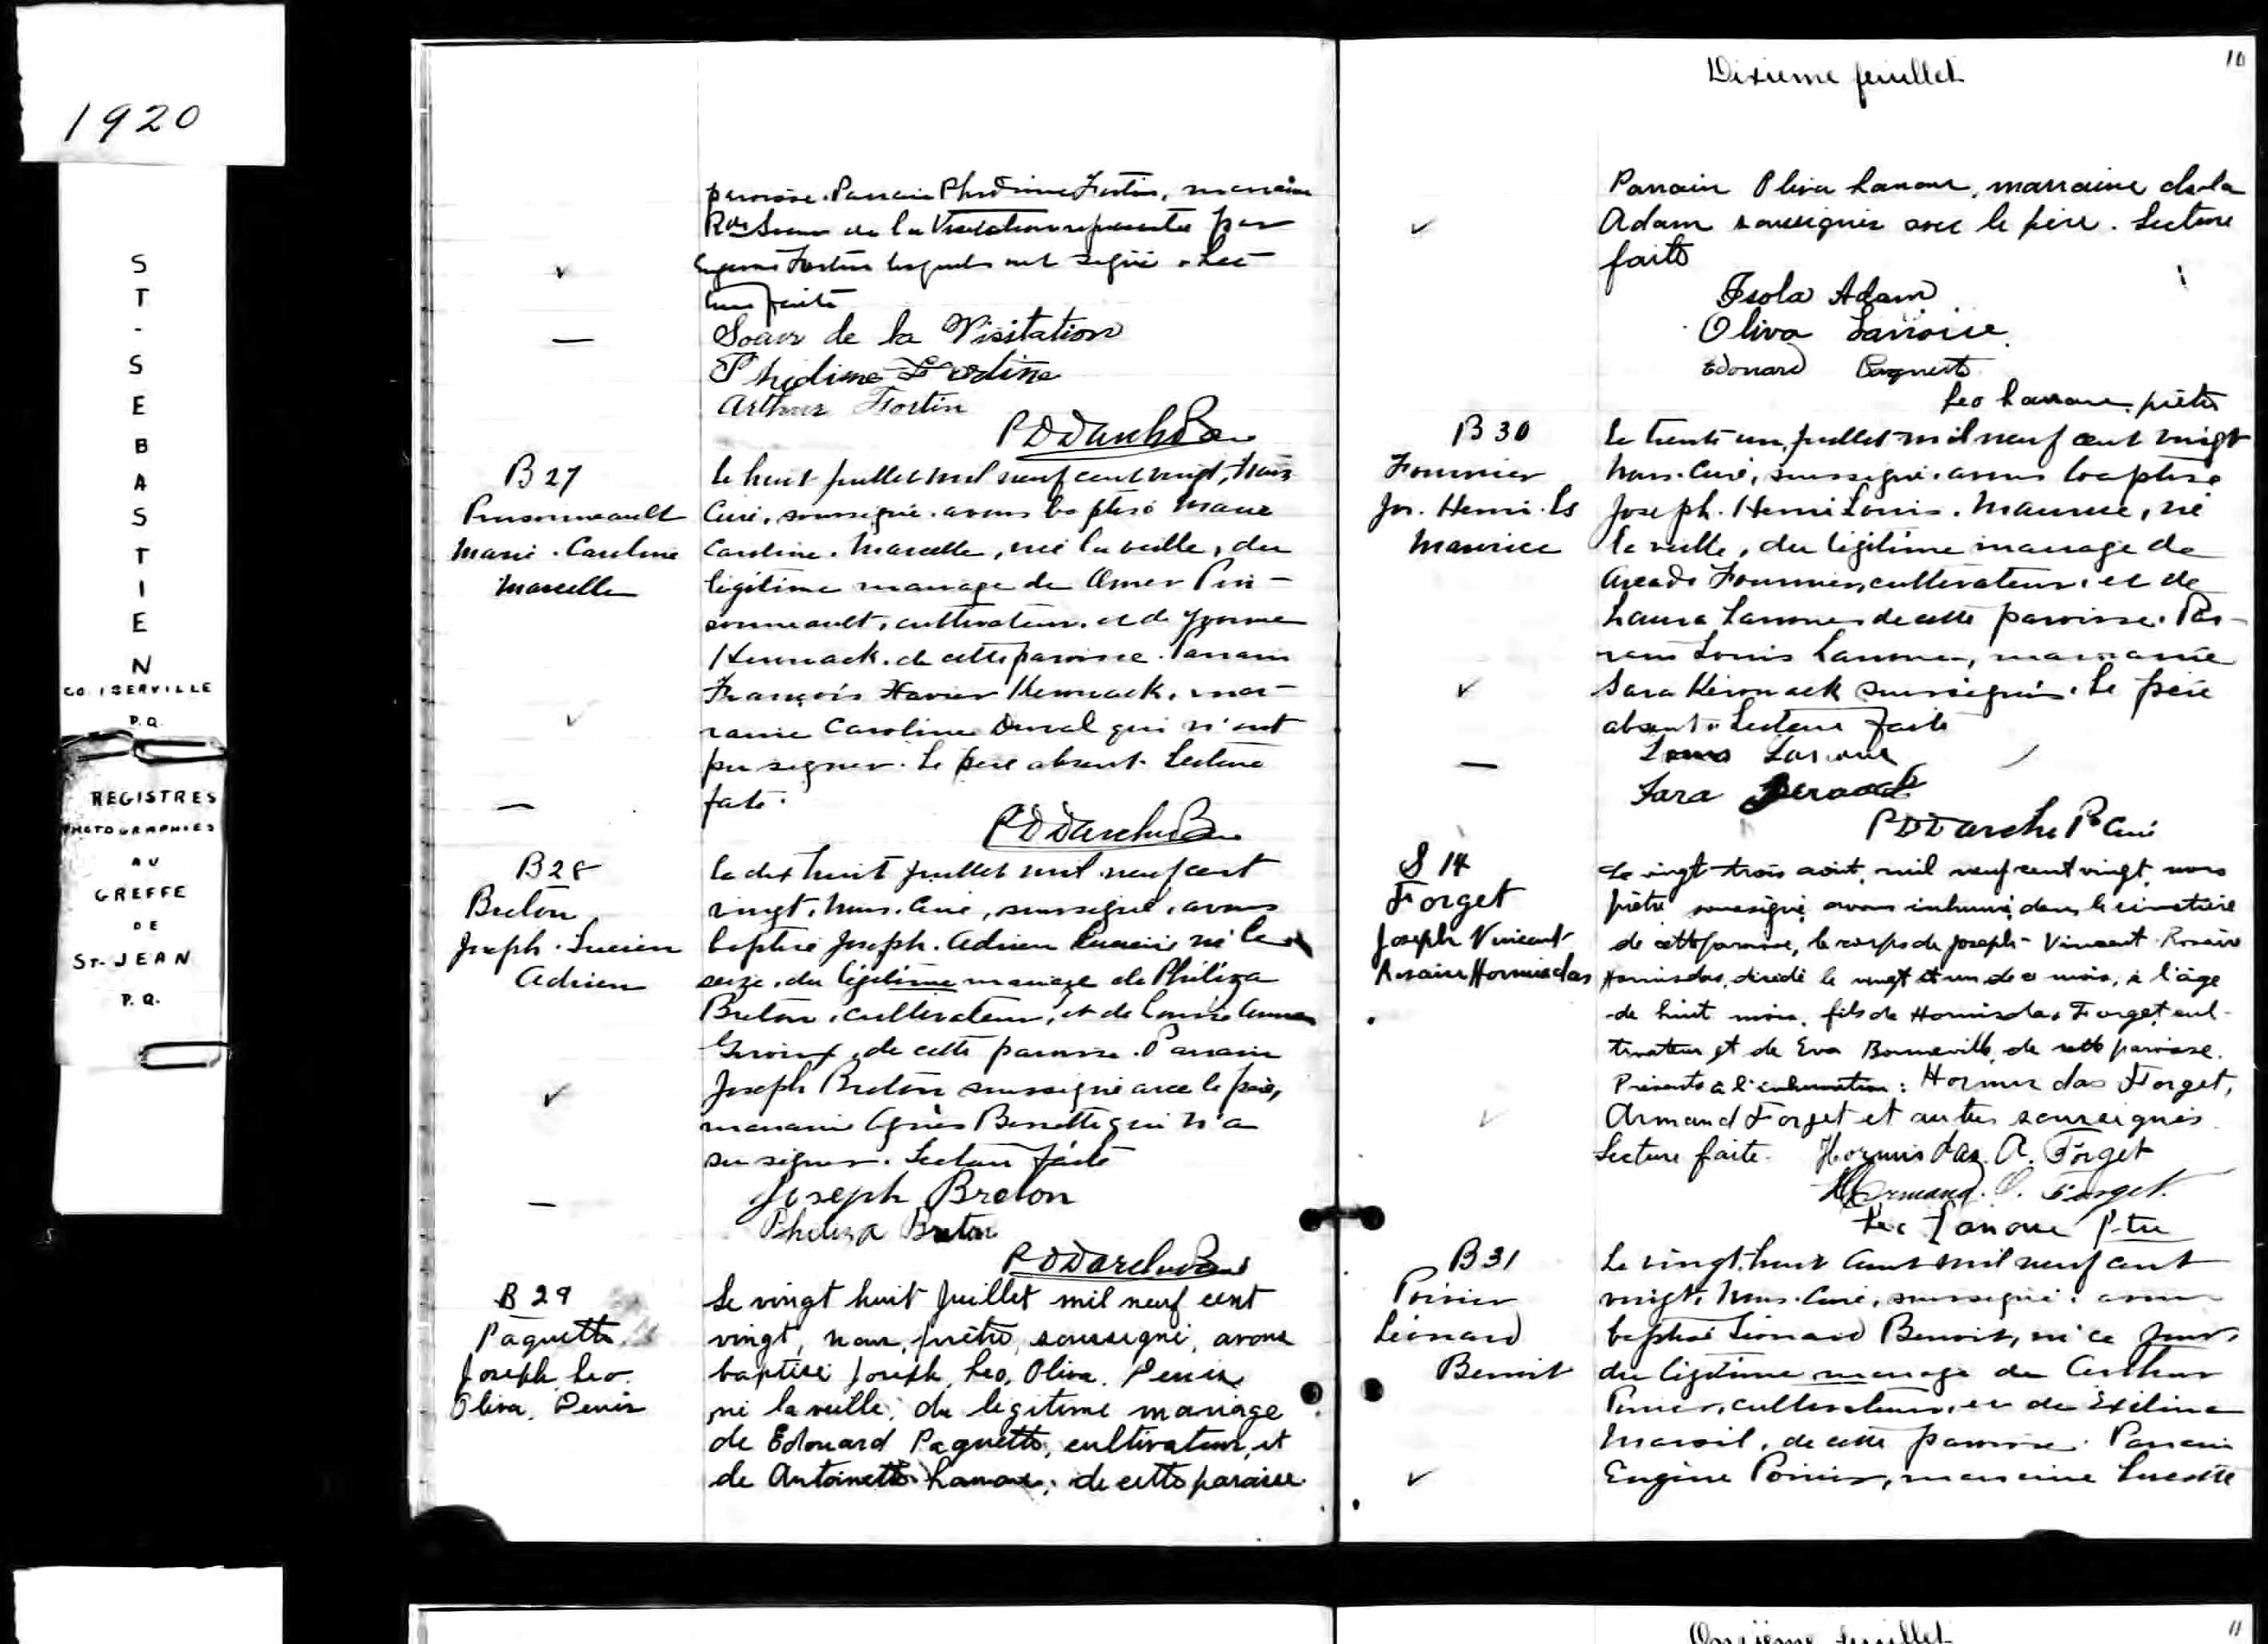 1920
ST-SEBASTIEN
CO. ISERVILLE
P.Q.
REGISTRES
PHOTOGRAPHIES
AU
GREFFE
DE
ST-JEAN
P.Q.
paroisse. Parrain Phidime Fortin, marraine
Rde Soeur de la Visitation representée par
Fortin lesquels ont signé. Lec-
ture faite
Soeur de la Visitation
Phidime Fortin
Arthur Fortin
B 27
Pinsonneault
Marie. Caroline
Marcelle
Le huit juillet mil neuf cent vingt, nous
Curé, soussigné. avons baptisé Marie
Caroline. Marcelle, née la veille, du
légitime mariage de Omer Pin-
sonneault, cultivateur. et de Yvonne
Kennack. de cette paroisse. Parrain
François Xavier Kennack, mar-
raine Caroline Duval qui n'ont
pu signer. Le père absent. Lecture
faite.
B 28
Breton
Joseph. Lucien
Adrien
Le dix huit juillet mil neuf cent
vingt, nous. Curé, soussigné, avons
baptisé Joseph. Adrien Lucien né le
seize, du légitime mariage de Philiza
Breton, cultivateur, et de Louise Anna
Giroux, de cette paroisse. Parrain
Joseph Breton soussigné avec le père,
marraine Agnès Bessette qui n'a
su signer. Lecture faite
Joseph Breton
Pheliza Breton
B 29
Paquette
Joseph Leo.
Oliva, Denis
Le vingt huit Juillet mil neuf cent
vingt, nous, prêtre, soussigné, avons
baptisé Joseph, Leo, Oliva, Denis
né la veille, du legitime mariage
de Edouard Paquette, cultivateur, et
de Antoinette Lanoue, de cette paroisse
Dixieme feuillet
10
Parrain Oliva Lanoue, marraine
Adam soussignés avec le père. Lecture
faite
Isola Adam
Oliva
Edouard Paquette
Leo Lanoue, prêtre
B 30
Fournier
Jos. Henri. Ls
Maurice
Le trente un, juillet mil neuf cent vingt
nous. Curé, soussigné. avons baptisé
Joseph. Henri Louis. Maurice, né
la veille, du légitime mariage de
Arcade Fournier, cultivateur. et de
Laura Lanoue de cette paroisse. Par-
rain Louis Lanoue, marraine
Sara soussignés. Le père
absent. Lecture faite
Louis Lanoue
Sara
P D Darche Ptre Curé
S 14
Forget
Joseph Vincent
Rosaire Hormisdas
Le vingt-trois août, mil neuf cent vingt, nous
prêtre soussigné, avons inhumé dans le cimetière
de cette paroisse, le corps de Joseph-Vincent Rosaire
Hormisdas, décédé le vingt et un de ce mois, à l'âge
de huit mois, fils de Hormisdas Forget, cul-
tivateur et de Eva Bonneville, de cette paroisse.
Présents à l'inhumation: Hormisdas Forget,
Armand Forget et autres soussignés
Lecture faite. Hormisdas. A. Forget
Armand. O. Forget.
Leo Lanoue Ptre
B 31
Poirier
Léonard
Benoit
Le vingt huit août mil neuf cent
vingt, nous. Curé, soussigné. avons
baptisé Léonard Benoit, né ce jour,
du légitime mariage de Arthur
Poirier, cultivateur, et de Exilina
Marsil, de cette paroisse. Parrain
Eugène Poirier, marraine Lucette
Onzième feuillet
11